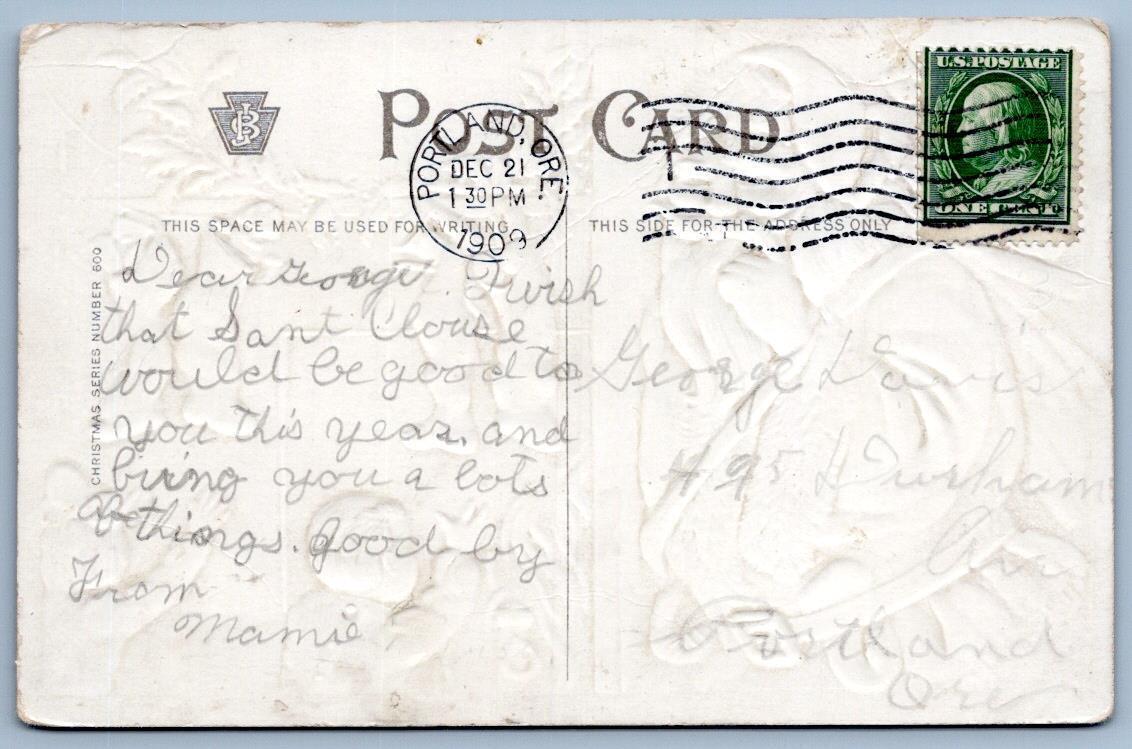 POST CARD
U.S.POSTAGE
ONE CENT
PORTLAND, ORE.
DEC 21
1 30 PM
1909
THIS SPACE MAY BE USED FOR WRITING
THIS SIDE FOR THE ADDRESS ONLY
CHRISTMAS SERIES NUMBER 600
Dear George. I wish
that Sant Clouse
would be good to
you this year. and
bring you a lots
of things. good by
From
Mamie
George Davis
495 Durham
Ave
Portland
Ore